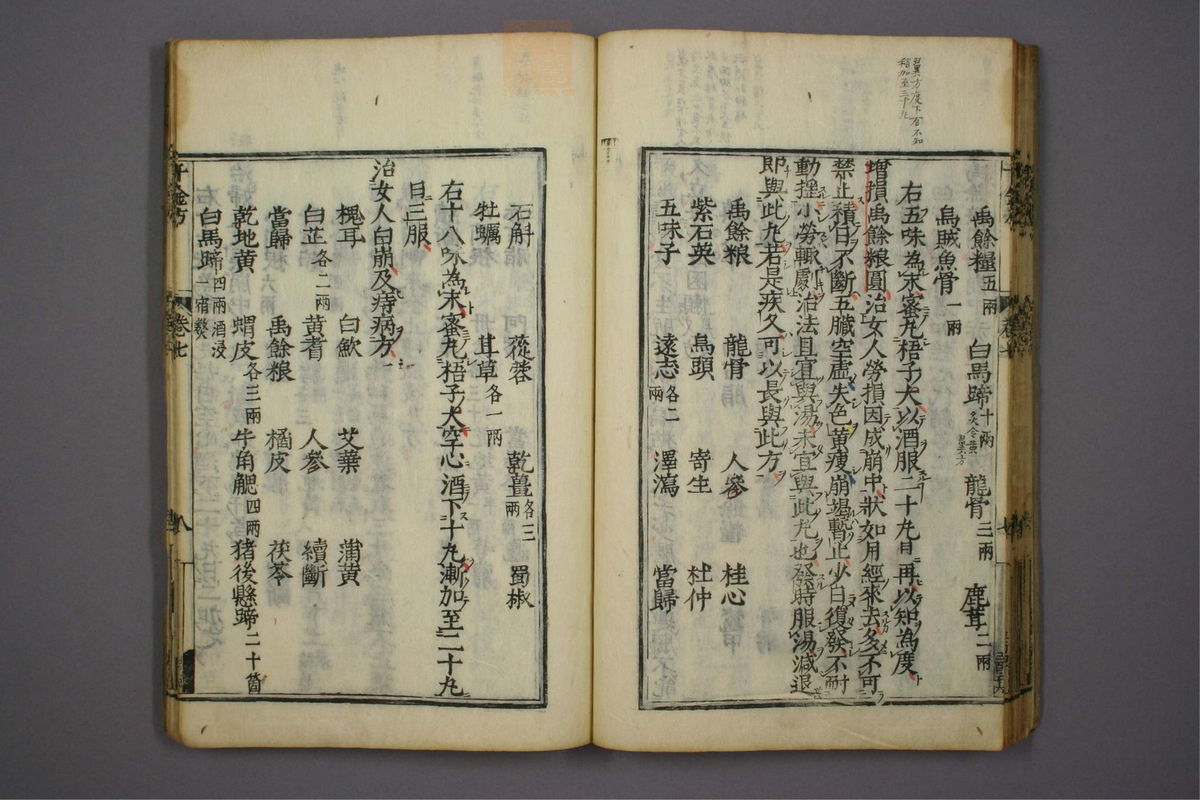 翼方度下有不知
稍加至三十丸
禹餘糧五兩 白馬蹄十兩 龍骨三兩 鹿茸二兩
烏賊魚骨一兩
右五味為末蜜丸梧子大以酒服二十丸日再以知為度
增損禹餘粮圓治女人勞損因成崩中狀如月經來去多不可
禁止積日不斷五臟空虛失色黃瘦崩竭暫止少日復發不耐
動搖小勞輒劇治法且宜與湯未宜與此丸也發時服湯減退
即與此丸若是疾久可以長與此方
禹餘粮 龍骨 人參 桂心
紫石英 烏頭 寄生 杜仲
五味子 遠志各二兩 澤瀉 當歸
石斛 蓯蓉 乾薑各三兩 蜀椒
牡蠣 甘草各一兩
右十八味為末蜜丸梧子大空心酒下十丸漸加至二十丸
日三服
治女人白崩及痔病方
槐耳 白歛 艾葉 蒲黃
白芷各二兩 黃耆 人參 續斷
當歸 禹餘粮 橘皮 茯苓
乾地黃 蝟皮各三兩 牛角䚡四兩 豬後懸蹄二十箇
白馬蹄四兩酒浸一宿熬
千金方 卷七 八